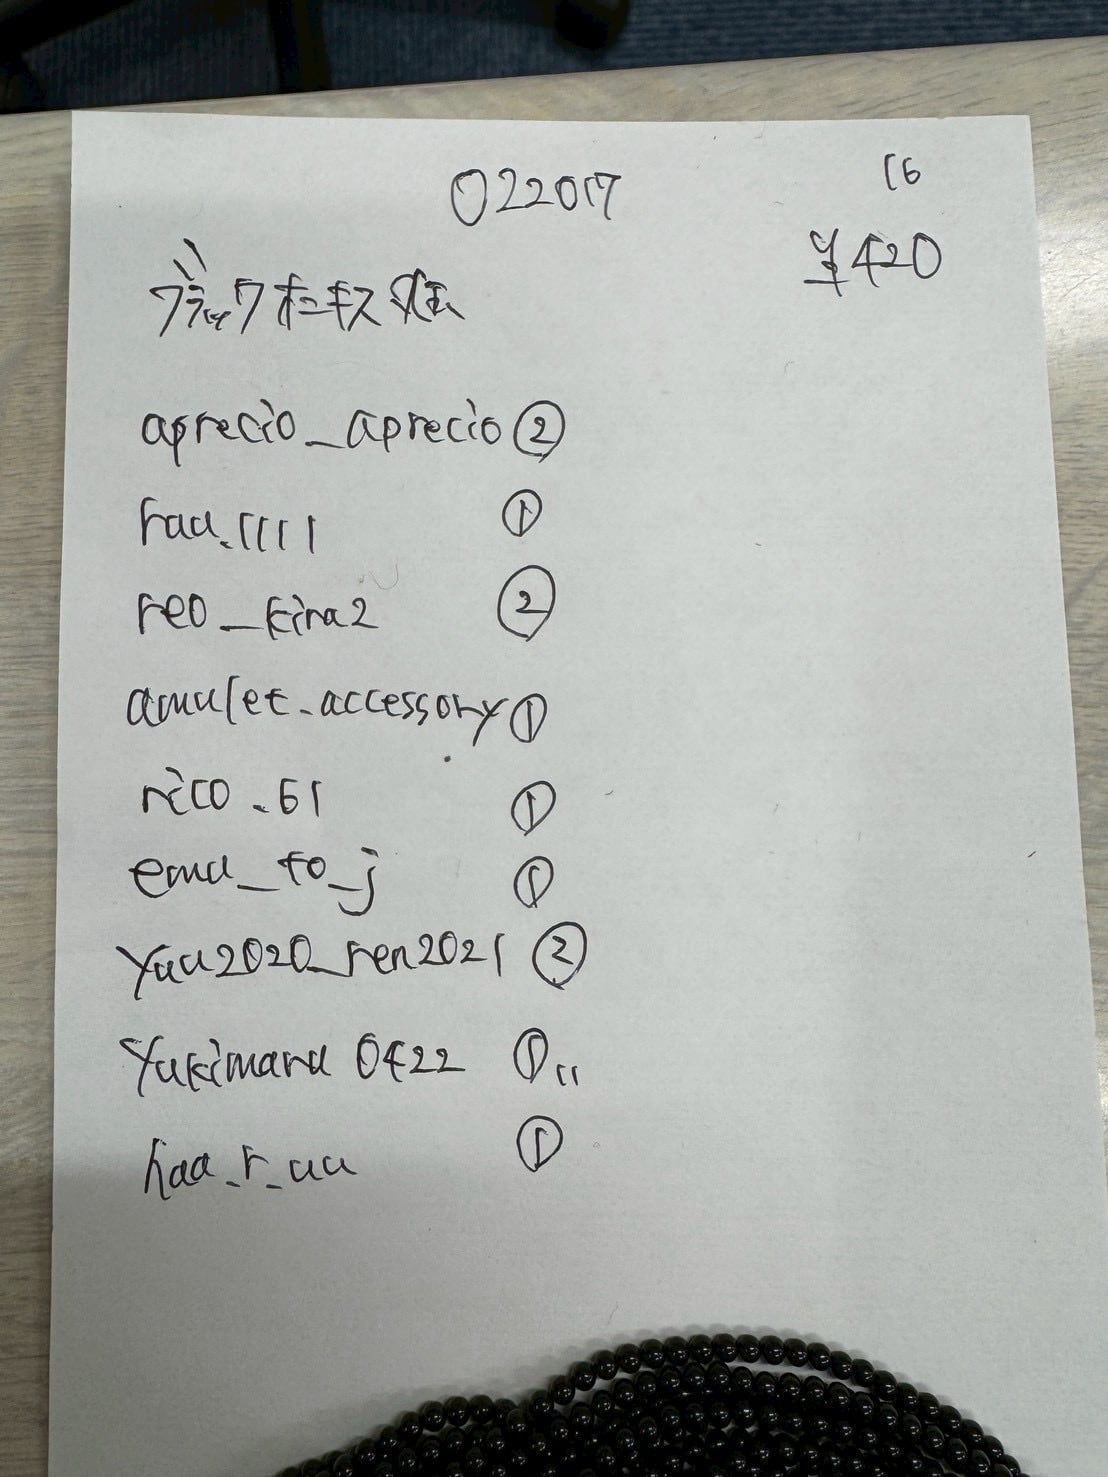 022017
16
¥420
ブラックオニキス
aprecio_aprecio ②
raa.1111 ①
reo_kira2 ②
amulet.accessory ①
rico.61 ①
emu_to_j ①
yuu2020_ren2021 ②
yukimaru 0422 ①
haa_r_uu ①